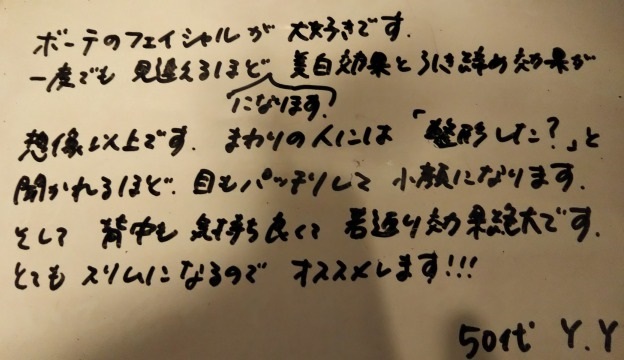 ボーテのフェイシャルが 大好きです.
一度でも 見違えるほど 美白効果と引き締め効果が
になります.
想像以上です. まわりの人には 「整形した?」と
聞かれるほど. 目もパッチリして 小顔になります.
そして 背中も 気持ち良くて 若返り効果絶大です.
とても スリムになるので オススメします!!!
50代 Y.Y